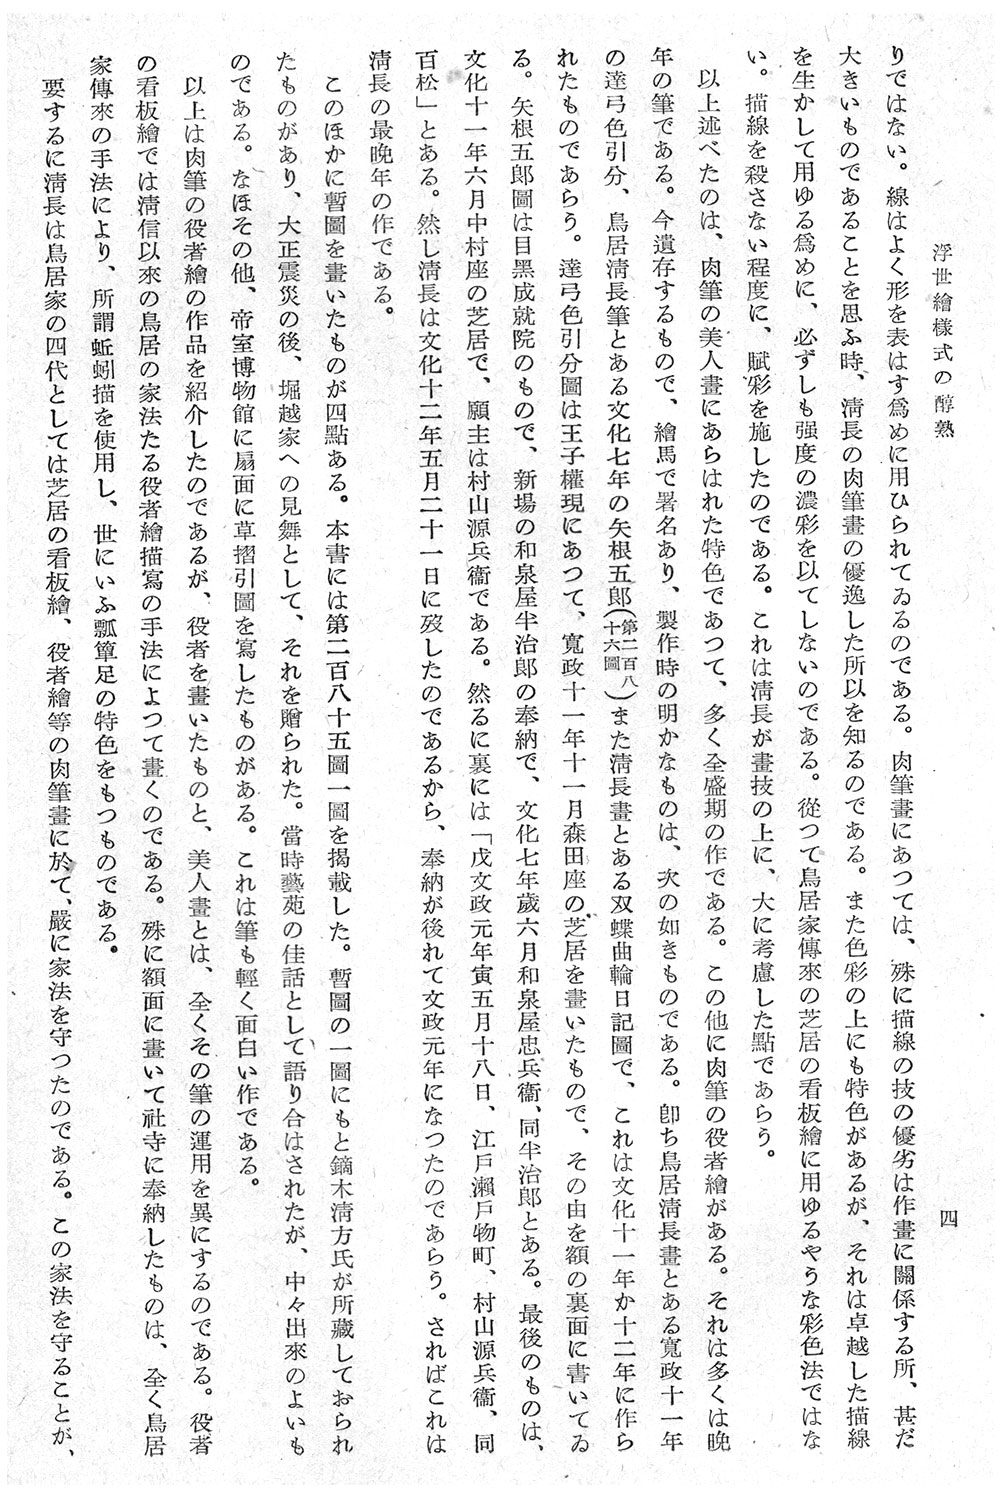 浮世繪樣式の醇熟
四
りではない。線はよく形を表はす爲めに用ひられてゐるのである。肉筆畫にあつては、殊に描線の技の優劣は作畫に關係する所、甚だ
大きいものであることを思ふ時、淸長の肉筆畫の優逸した所以を知るのである。また色彩の上にも特色があるが、それは卓越した描線
を生かして用ゆる爲めに、必ずしも强度の濃彩を以てしないのである。從つて鳥居家傳來の芝居の看板繪に用ゆるやうな彩色法ではな
い。描線を殺さない程度に、賦彩を施したのである。これは淸長が畫技の上に、大に考慮した點であらう。
以上述べたのは、肉筆の美人畫にあらはれた特色であつて、多く全盛期の作である。この他に肉筆の役者繪がある。それは多くは晚
年の筆である。今遺存するもので、繪馬で署名あり、製作時の明かなものは、次の如きものである。卽ち鳥居淸長畫とある寬政十一年
の達弓色引分、鳥居淸長筆とある文化七年の矢根五郎(第二百八十六圖)また淸長畫とある双蝶曲輪日記圖で、これは文化十一年か十二年に作ら
れたものであらう。達弓色引分圖は王子權現にあつて、寬政十一年十一月森田座の芝居を畫いたもので、その由を額の裏面に書いてゐ
る。矢根五郎圖は目黑成就院のもので、新場の和泉屋半治郎の奉納で、文化七年歲六月和泉屋忠兵衞、同半治郎とある。最後のものは、
文化十一年六月中村座の芝居で、願主は村山源兵衞である。然るに裏には「戊文政元年寅五月十八日、江戶瀨戶物町、村山源兵衞、同
百松」とある。然し淸長は文化十二年五月二十一日に歿したのであるから、奉納が後れて文政元年になつたのであらう。さればこれは
淸長の最晚年の作である。
このほかに暫圖を畫いたものが四點ある。本書には第二百八十五圖一圖を揭載した。暫圖の一圖にもと鏑木淸方氏が所藏しておられ
たものがあり、大正震災の後、堀越家への見舞として、それを贈られた。當時藝苑の佳話として語り合はされたが、中々出來のよいも
のである。なほその他、帝室博物館に扇面に草摺引圖を寫したものがある。これは筆も輕く面白い作である。
以上は肉筆の役者繪の作品を紹介したのであるが、役者を畫いたものと、美人畫とは、全くその筆の運用を異にするのである。役者
の看板繪では淸信以來の鳥居の家法たる役者繪描寫の手法によつて畫くのである。殊に額面に畫いて社寺に奉納したものは、全く鳥居
家傳來の手法により、所謂蚯蚓描を使用し、世にいふ瓢簞足の特色をもつものである。
要するに淸長は鳥居家の四代としては芝居の看板繪、役者繪等の肉筆畫に於て、嚴に家法を守つたのである。この家法を守ることが、